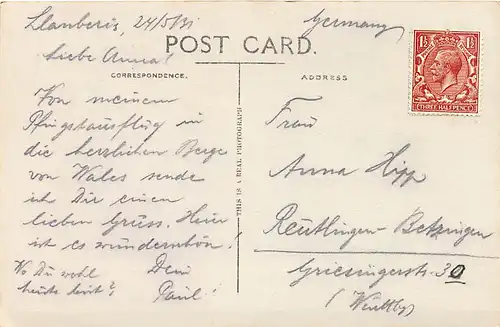 Llanberis, 24/5/31
Germany
Liebe Anna!
POST CARD.
CORRESPONDENCE.
ADDRESS
1½ 1½
THREE HALFPENCE
THIS IS A REAL PHOTOGRAPH
Von meinem
Pfingstausflug in
die herrlichen Berge
von Wales sende
ich Dir einen
lieben Gruss. Hier
ist es wunderschön!
Wo Du wohl
heute bist?
Dein
Paul!
Frau
Anna Hipp
Reutlingen-Betzingen
Griesingerstr. 30
(Württbg)